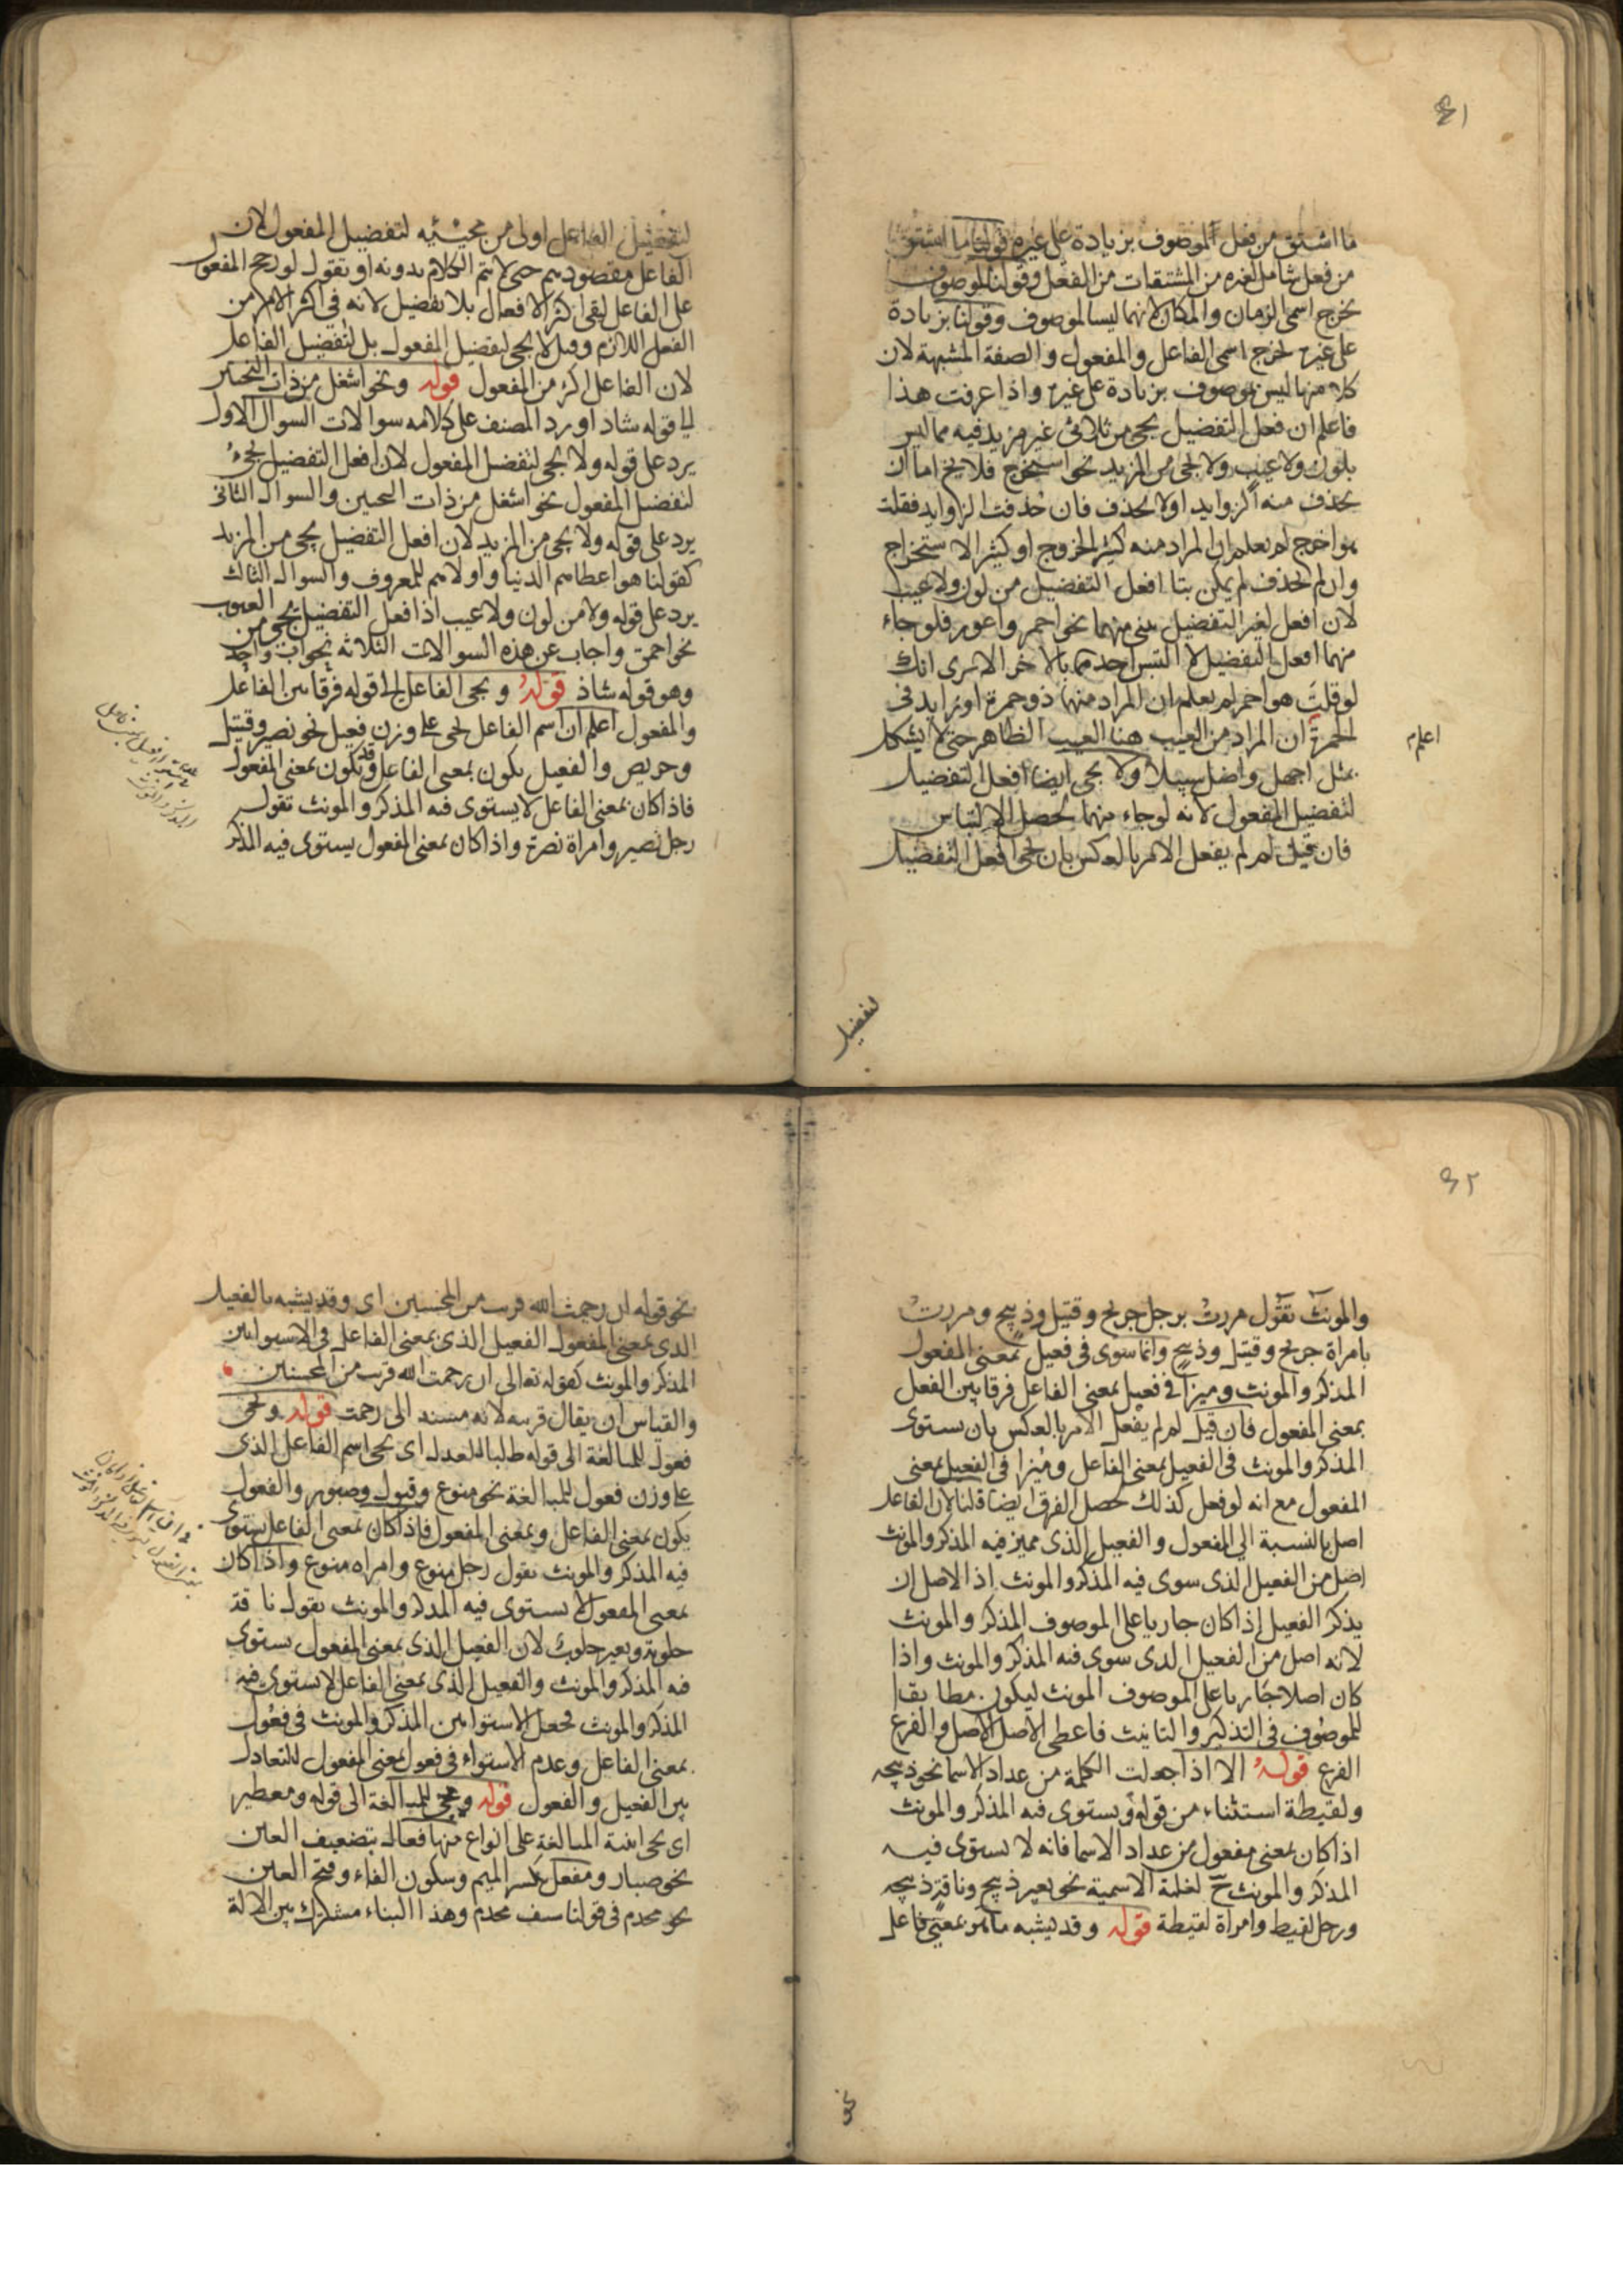 ٤١
ما اشتق من فعل الموصوف بزيادة على غيره قولنا ما اشتق
من فعل شامل لغيره من المشتقات من الفعل وقولنا لموصوف
يخرج اسمى الزمان والمكان لانهما ليسا لموصوف وقولنا بزيادة
على غيره يخرج اسمى الفاعل والمفعول والصفة المشبهة لان
كلا منها ليس لموصوف بزيادة على غيره واذا عرفت هذا
فاعلم ان فعل التفضيل يجى من ثلاثى غير مزيد فيه مما ليس
بلون ولا عيب ولا يجى من المزيد نحو استخرج فلا يخ اما ان
يحذف منه الزوايد اولا يحذف فان حذفت الزوايد فقلت
هو اخرج لم يعلم ان المراد منه كثير الخروج او كثير الاستخراج
وان لم يحذف لم يمكن بنا افعل التفضيل من لون ولا عيب
لان افعل لغير التفضيل يبنى منهما نحو احمر واعور فلو جاء
منهما افعل التفضيل لالتبس احدهما بالاخر الا ترى انك
لو قلت هو احمر لم يعلم ان المراد منهما ذو حمرة او زايد فى
الحمرة ان المراد من العيب هنا العيب الظاهر حتى لا يشكل
اعلم
بمثل اجهل واضل سبيلا ولا يجى ايضا افعل التفضيل
لتفضيل المفعول لانه لو جاء منهما لحصل الالتباس
فان قيل لم لم يفعل الامر بالعكس بان يجى افعل التفضيل
لتفضيل
لتفضيل الفاعل اولى من مجيئه لتفضيل المفعول لان
الفاعل مقصود بهم حتى لا يتم الكلام بدونه او نقول لو رجح المفعول
على الفاعل لبقى اكثر الافعال بلا تفضيل لانه فى اكثر الامر من
الفعل اللازم وقيل لا يجى لتفضيل المفعول بل لتفضيل الفاعل
لان الفاعل اكثر من المفعول قوله ونحو اشغل من ذات النحيين
الى قوله شاذ اورد المصنف على كلامه سوالات السوال الاول
يرد على قوله ولا يجى لتفضيل المفعول لان افعل التفضيل يجىء
لتفضيل المفعول نحو اشغل من ذات النحيين والسوال الثانى
يرد على قوله ولا يجى من المزيد لان افعل التفضيل يجى من المزيد
كقولنا هو اعطاهم الدنيا واولاهم للمعروف والسوال الثالث
يرد على قوله ولا من لون ولا عيب اذ افعل التفضيل يجى من العيوب
نحو احمق واجاب عن هذه السوالات الثلاثة بجواب واحد
وهو قوله شاذ قوله ويجى الفاعل الى قوله فرقا بين الفاعل
والمفعول اعلم ان اسم الفاعل يجى على وزن فعيل نحو نصير وقتيل
وحريص والفعيل يكون بمعنى الفاعل وقد يكون بمعنى المفعول
فاذا كان بمعنى الفاعل لا يستوى فيه المذكر والمونث تقول
رجل نصير وامراة نصرة واذا كان بمعنى المفعول يستوى فيه المذكر
٤٢
والمونث تقول مررت برجل جريح وقتيل وذبيح ومررت
بامراة جريح وقتيل وذبيح وانما سوى فى فعيل بمعنى المفعول
المذكر والمونث وميزا فى فعيل بمعنى الفاعل فرقا بين الفعل
بمعنى المفعول فان قيل لم لم يفعل الامر بالعكس بان يستوى
المذكر والمونث فى الفعيل بمعنى الفاعل وميزا فى الفعيل بمعنى
المفعول مع انه لو فعل كذلك لحصل الفرق ايضا قلنا لان الفاعل
اصل بالنسبة الى المفعول والفعيل الذى مميز فيه المذكر والمونث
اصل من الفعيل الذى سوى فيه المذكر والمونث اذ الاصل ان
يذكر الفعيل اذا كان جاريا على الموصوف المذكر والمونث
لانه اصل من الفعيل الذى سوى فيه المذكر والمونث واذا
كان اصلا جاريا على الموصوف المونث ليكون مطابقا
للموصوف فى التذكير والتانيث فاعطى الاصل الاصل والفرع
الفرع قوله الا اذا جعلت الكلمة من عداد الاسما نحو ذبيحة
ولقيطة استثناء من قوله ويستوى فيه المذكر والمونث
اذا كان بمعنى مفعول من عداد الاسما فانه لا يستوى فيه
المذكر والمونث ح لغلبة الاسمية نحو بعير ذبيح وناقة ذبيحة
ورجل لقيط وامراة لقيطة قوله وقد يشبه ما هو بمعنى فاعل
نحو
نحو قوله ان رحمت الله قريب من المحسنين اى وقد يشبه بالفعيل
الذى بمعنى المفعول الفعيل الذى بمعنى الفاعل فى الاستوا بين
المذكر والمونث كقوله تعالى ان رحمت الله قريب من المحسنين
والقياس ان يقال قريبة لانه مسند الى رحمت قوله ويجى
فعول للمبالغة الى قوله طلبا للعدل اى يجى اسم الفاعل الذى
على وزن فعول للمبالغة نحو منوع وقبول وصبور والفعول
يكون بمعنى الفاعل وبمعنى المفعول فاذا كان بمعنى الفاعل يستوى
فيه المذكر والمونث تقول رجل منوع وامراه منوع واذا كان
بمعنى المفعول لا يستوى فيه المذكر والمونث تقول ناقة
حلوبة وبعير حلوب لان الفعيل الذى بمعنى المفعول يستوى
فيه المذكر والمونث والفعيل الذى بمعنى الفاعل لا يستوى فيه
المذكر والمونث فجعل الاستوا بين المذكر والمونث فى فعول
بمعنى الفاعل وعدم الاستواء فى فعول بمعنى المفعول للتعادل
بين الفعيل والفعول قوله ويجى للمبالغة الى قوله ومعطير
اى يجى ابنية المبالغة على انواع منها فعال بتضعيف العين
نحو صبار ومفعل بكسر الميم وسكون الفاء وفتح العين
نحو مخدم فى قولنا سيف مخدم وهذا البناء مشترك بين الالة